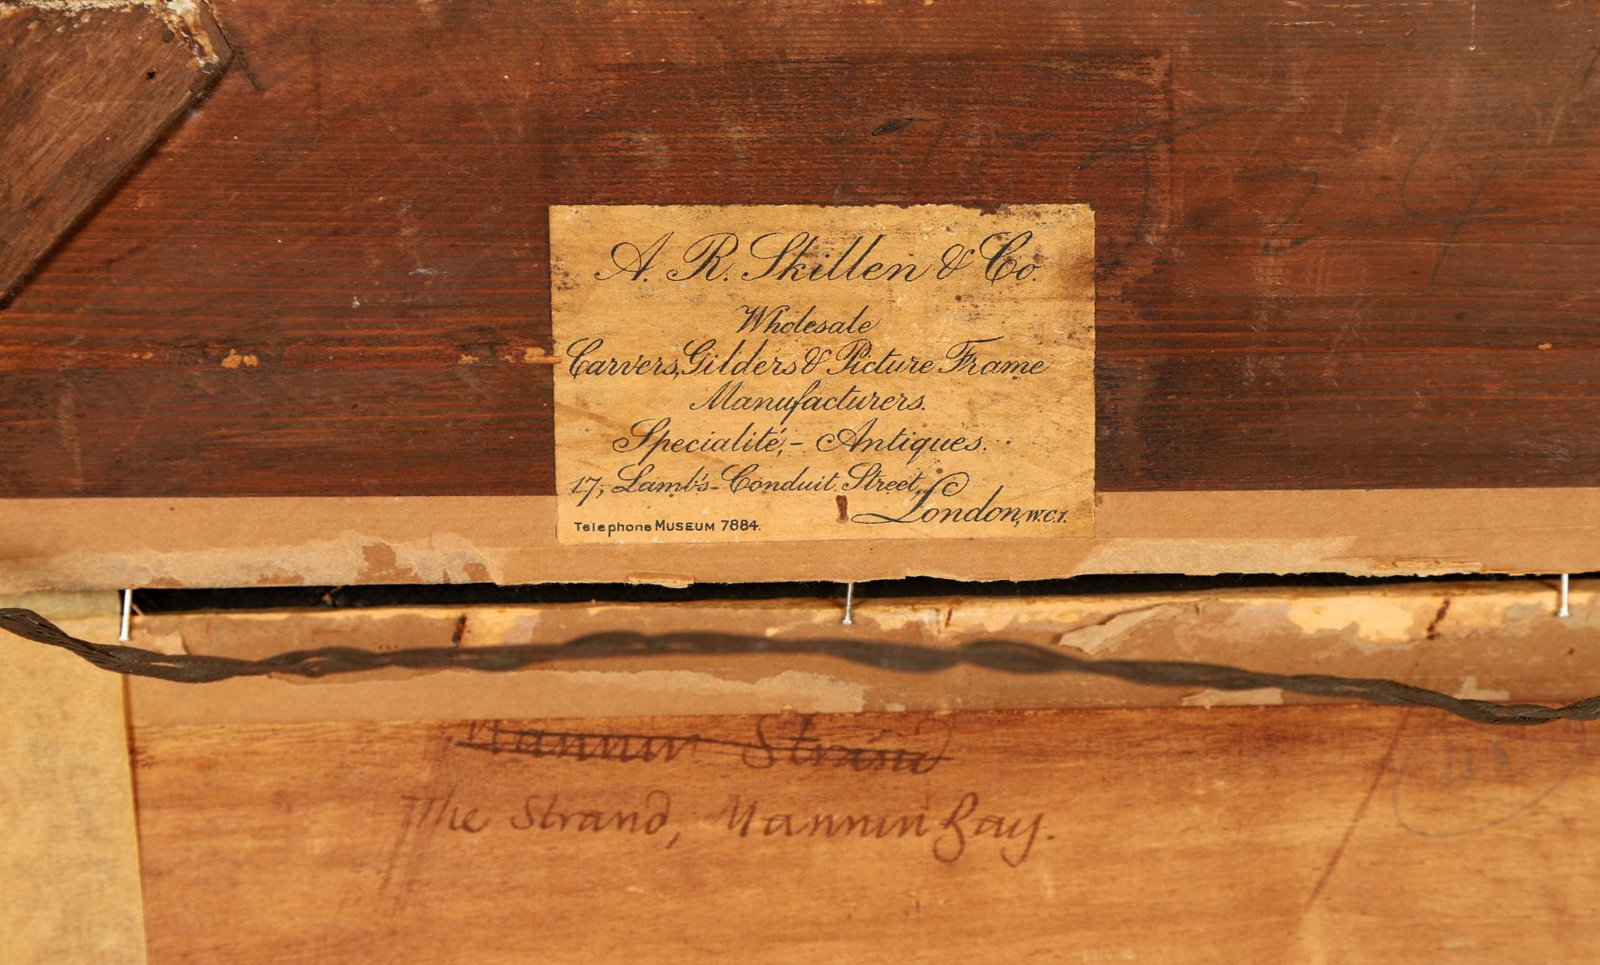 A. R. Skillen & Co.
Wholesale
Carvers, Gilders & Picture Frame
Manufacturers.
Specialité,- Antiques.
17, Lamb's-Conduit Street,
London, W.C.1.
Telephone MUSEUM 7884.
Mannin Strand
The Strand, Mannin Bay.